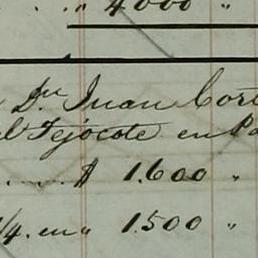 " 4000 "
Dn. Juan Cort
el Tejocote en Pa
$ 1.600 "
1/4. en " 1.500 "